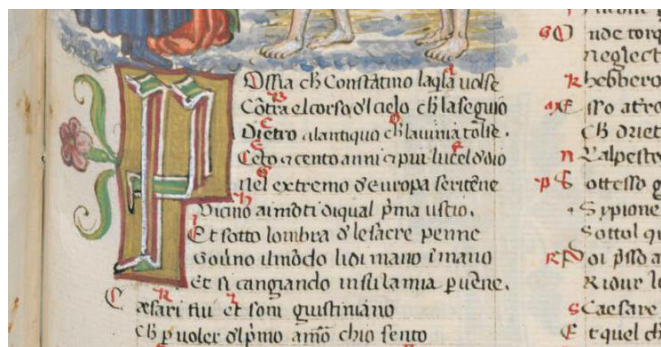 POssia ch Constãtino laq̃la uolse
Cõtra el corso dl cielo ch la seguio
Dietro alantiquo ch lauinia tolse.
Cẽto e cento anni e piu lucel d dio
Nel extremo deuropa seritẽne
Vicino ai mõti di qual p̃ma uscio,
Et sotto lombra d le sacre penne
Gouno il mõdo li di mano ĩ mano
Et si cangiando insu la mia puẽne.
Cæsari fui et soni giustiniano
Ch p uoler dl pmo amõ chio sento
nde torq
neglect
hebbero
sso atro
Ch driet
Lalpest
ottesso g
Sypione
Sottol qu
oi p̃sso a
Caesare
E tquel ch